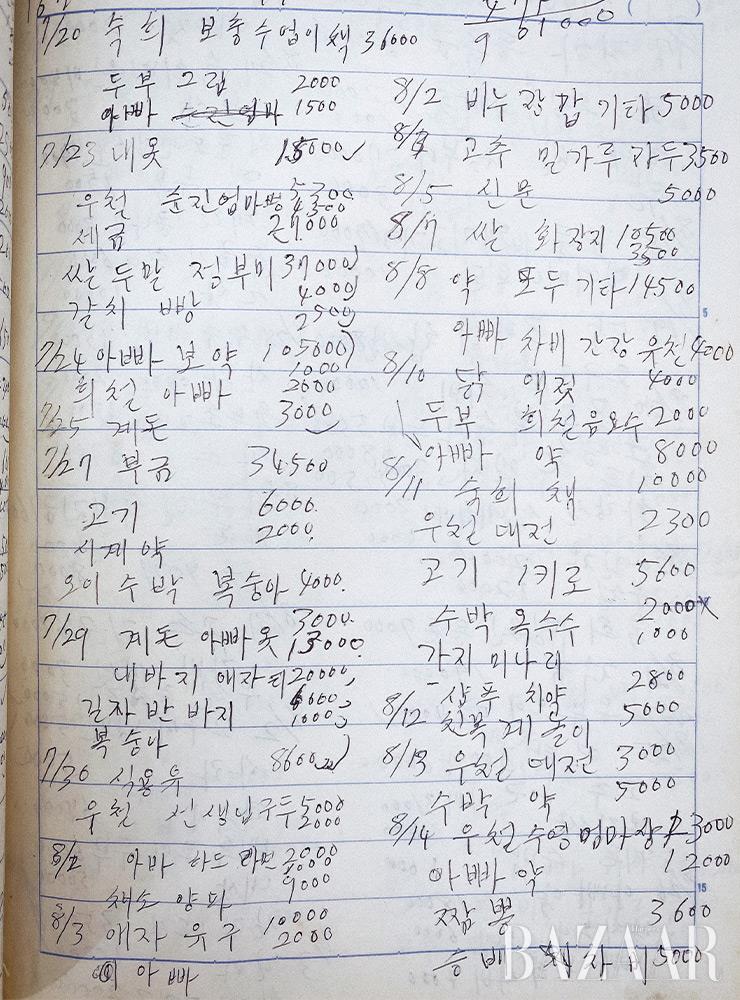 7/20 숙희 보충수업이책 36000
두부 그립 2000
아빠 1500
7/23 내옷 15000
우철 순진엄마
세금 27.000
쌀두말 정부미 37000
갈치 빵 4000
2500
7/24 아빠 보약 105000
1000
희철 아빠 2000
7/25 계돈 3000
7/27 부금 34.500
고기 6000
시계약 2000
오이 수박 복숭아 4000
3000
7/29 계돈 아빠옷 13000
내바지 애자 20000
긴자반바지 6000
1000
복숭아
7/30 식용유 8600
우철 선생님구두 5000
2000
8/2 아빠 하드 라면 2000
채소 양파 9000
8/3 애자 유구 10000
2000
아빠
9 01000
8/2 비누 잡합 기타 5000
고추 밀가루 자두 3500
8/5 신문 5000
8/7 쌀 화장지 10500
3500
8/8 약 모두 기타 14500
아빠 차비 간장 우철 4000
8/10 닭 액젓 4000
두부 희철음요수 2000
아빠 약 8000
8/11 숙희 책 10000
우철 대전 2300
고기 1키로 5600
수박 옥수수 2000
가지 미나리 1000
샴푸 치약 2800
8/12 친목계 놀이 5000
8/13 우철 대전 3000
수박 약 5000
8/14 우철 수영 엄마 3000
아빠 약 12000
짬뽕 3600
승배 5000
BAZAAR
5
15